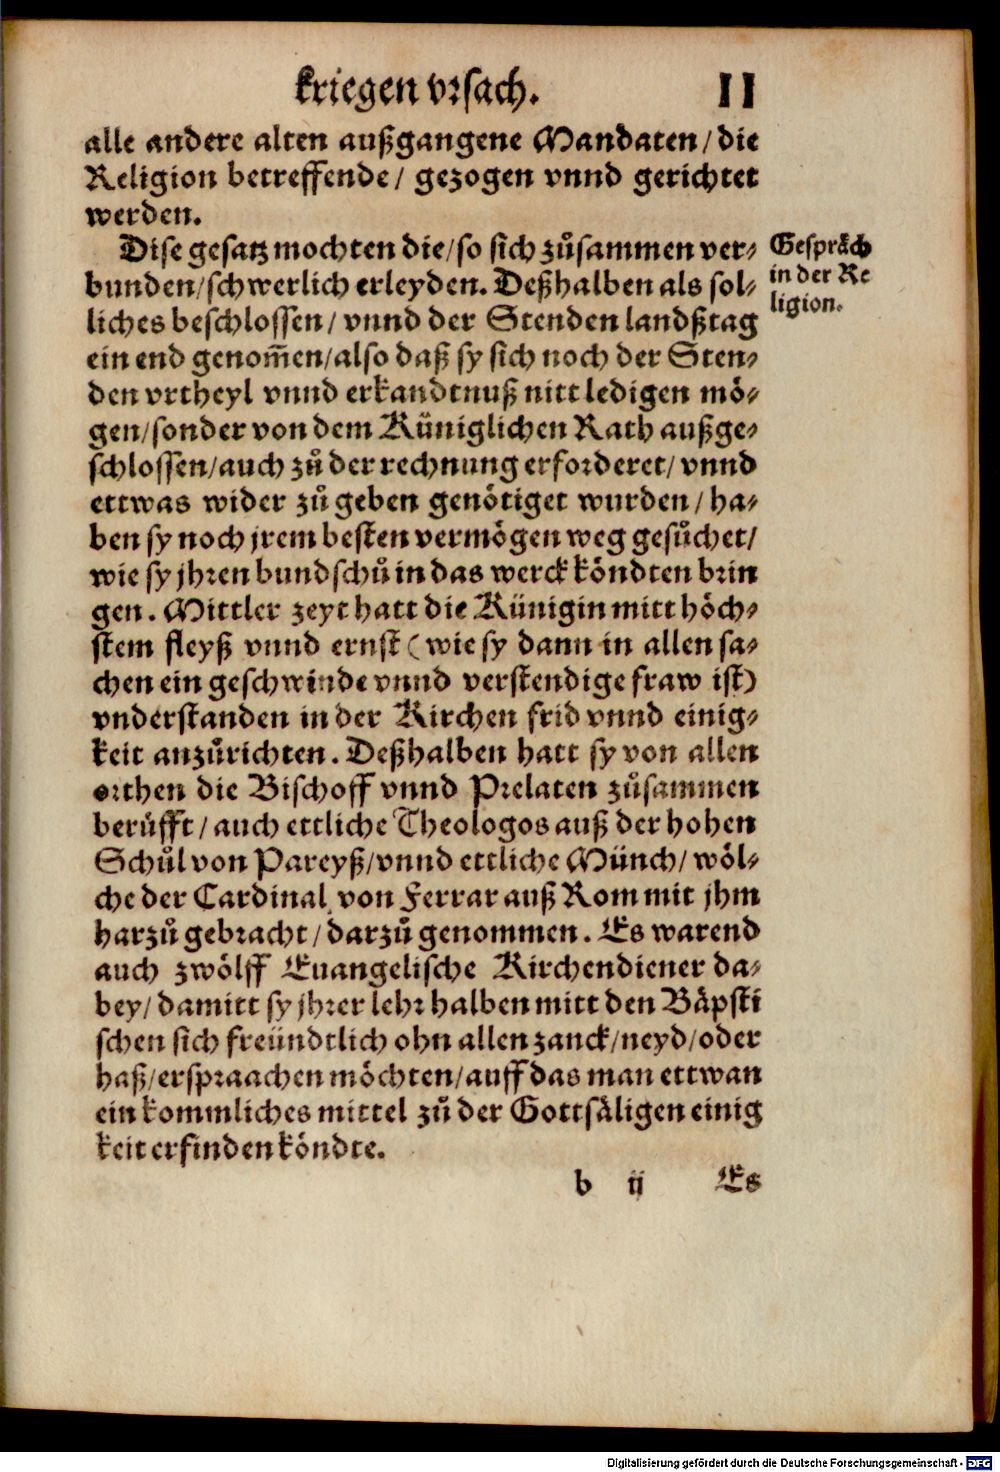 kriegen vrsach. 11
alle andere alten außgangene Mandaten / die
Religion betreffende / gezogen vnnd gerichtet
werden.
Dise gesatz mochten die / so sich zůsammen ver-
bunden / schwerlich erleyden. Deßhalben als sol-
liches beschlossen / vnnd der Stenden landßtag
ein end genom̃en / also daß sy sich noch der Sten-
den vrtheyl vnnd erkandtnuß nitt ledigen mö-
gen / sonder von dem Küniglichen Rath außge-
schlossen / auch zů der rechnung erforderet / vnnd
ettwas wider zů geben genötiget wurden / ha-
ben sy noch jrem besten vermögen weg gesůchet /
wie sy jhren bundschů in das werck köndten brin
gen. Mittler zeyt hatt die Künigin mitt höch-
stem fleyß vnnd ernst (wie sy dann in allen sa-
chen ein geschwinde vnnd verstendige fraw ist)
vnderstanden in der Kirchen frid vnnd einig-
keit anzůrichten. Deßhalben hatt sy von allen
orthen die Bischoff vnnd Prelaten zůsammen
berůfft / auch ettliche Theologos auß der hohen
Schůl von Pareyß / vnnd ettliche Münch / wöl-
che der Cardinal von Ferrar auß Rom mit jhm
harzů gebracht / darzů genommen. Es warend
auch zwölff Euangelische Kirchendiener da-
bey / damitt sy jhrer lehr halben mitt den Bäpsti
schen sich freündtlich ohn allen zanck / neyd / oder
haß / erspraachen möchten / auff das man ettwan
ein kommliches mittel zů der Gottsäligen einig
keit erfinden köndte.
b ij Es
Gespräch
in der Re
ligion.
Digitalisierung gefördert durch die Deutsche Forschungsgemeinschaft - DFG